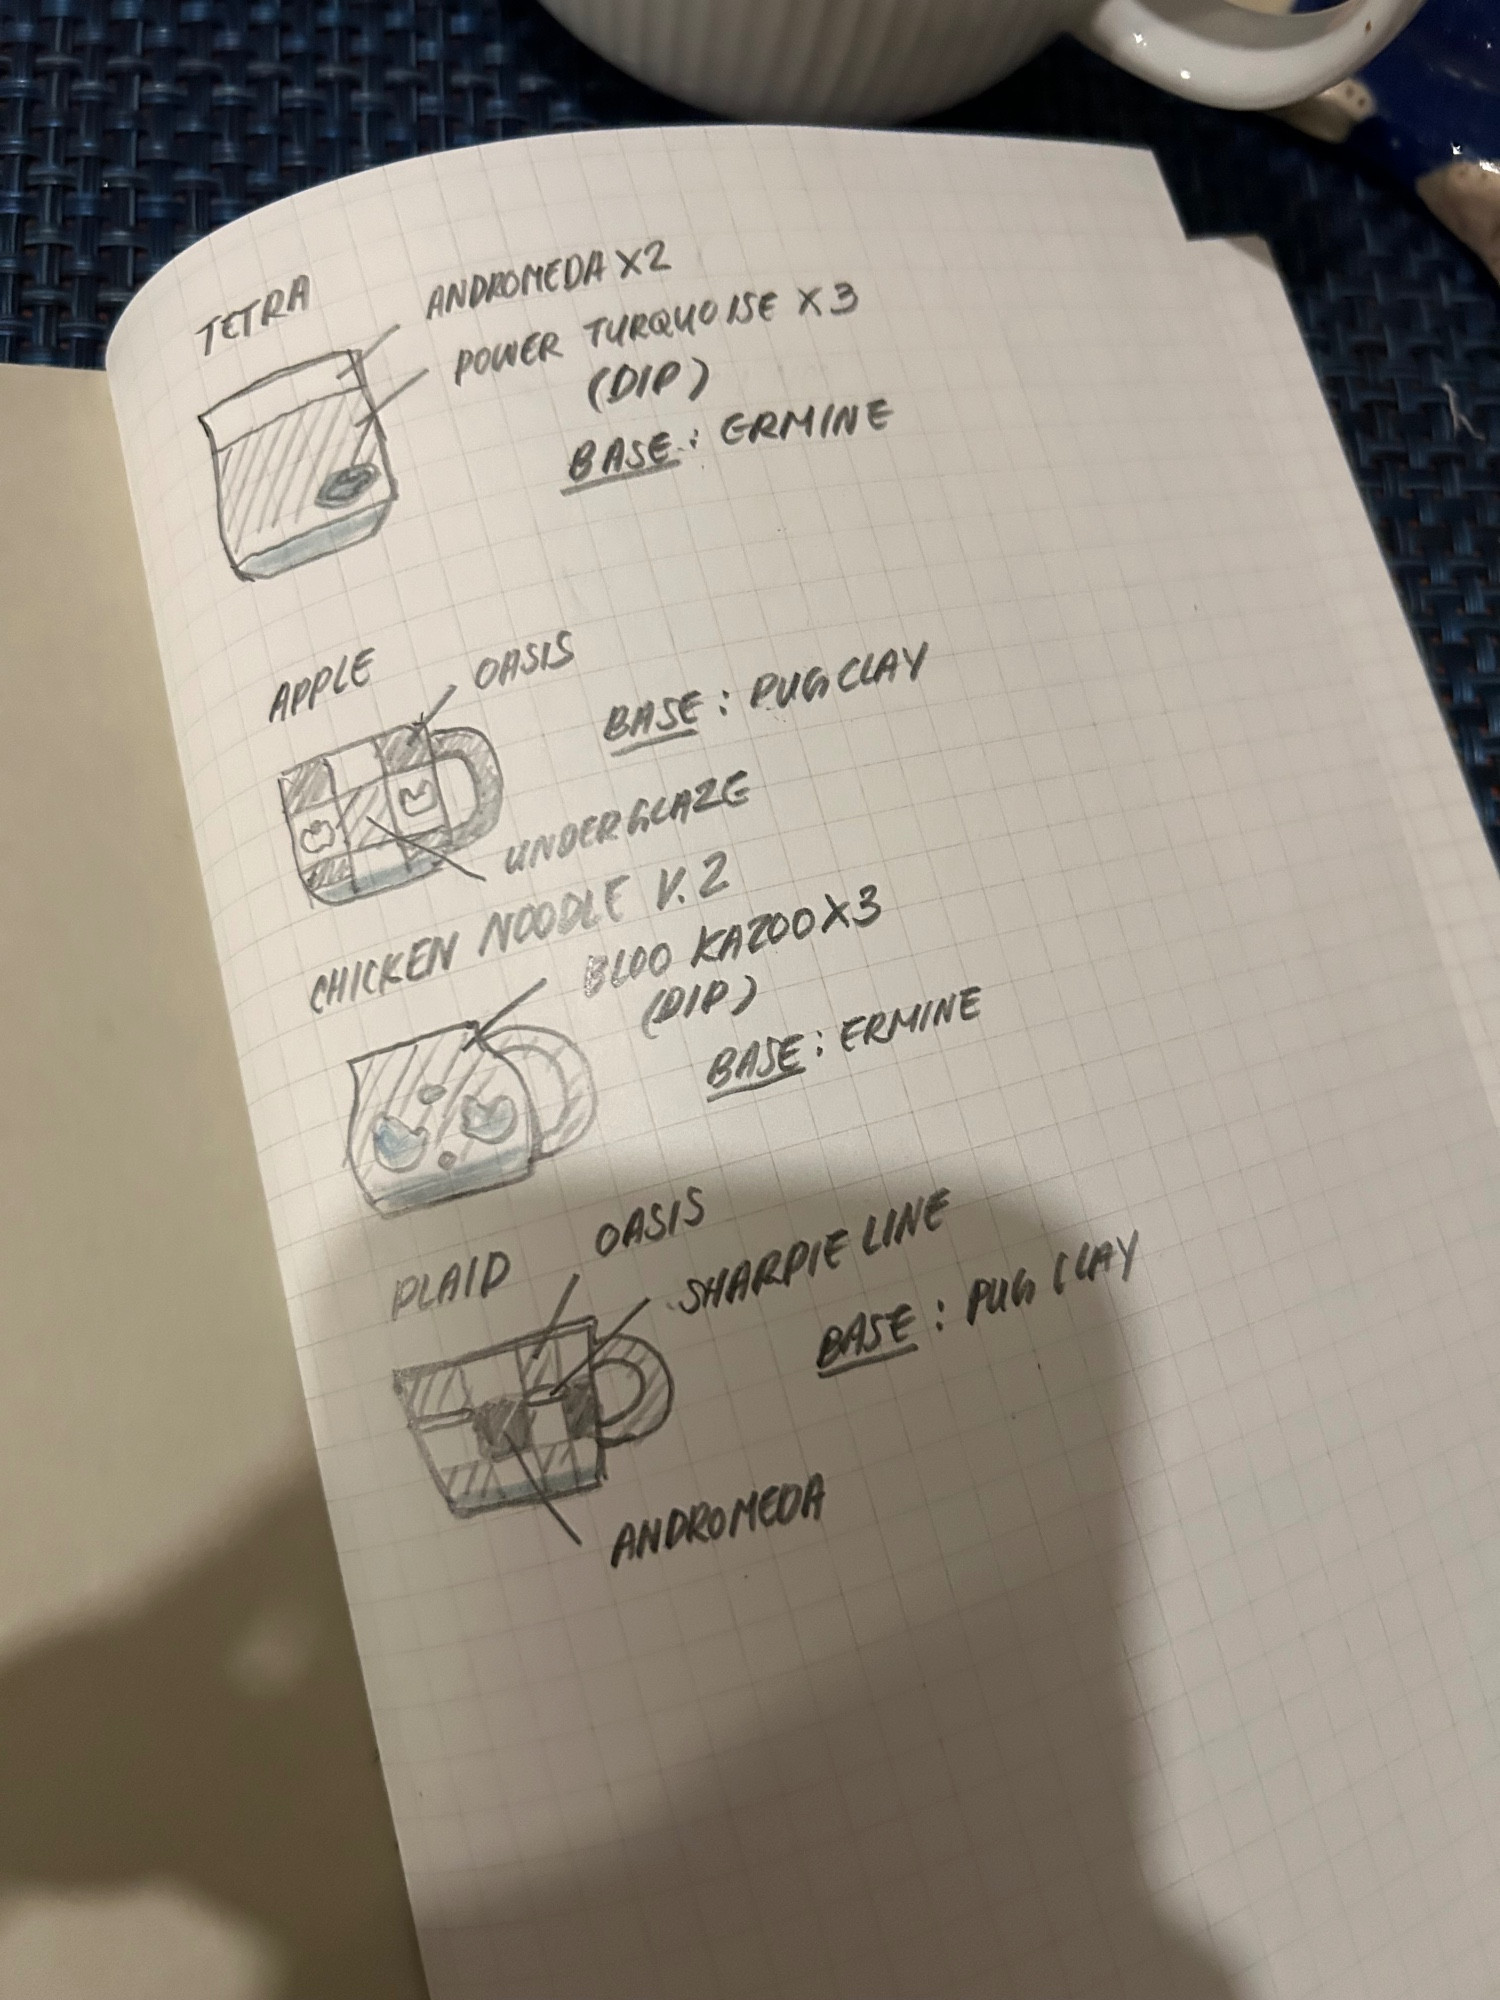 TETRA
ANDROMEDA X2
POWER TURQUOISE X3
(DIP)
BASE: ERMINE
APPLE
OASIS
BASE: PUG CLAY
UNDERGLAZE
CHICKEN NOODLE V.2
BLOO KAZOO X3
(DIP)
BASE: ERMINE
PLAID
OASIS
SHARPIE LINE
BASE: PUG CLAY
ANDROMEDA